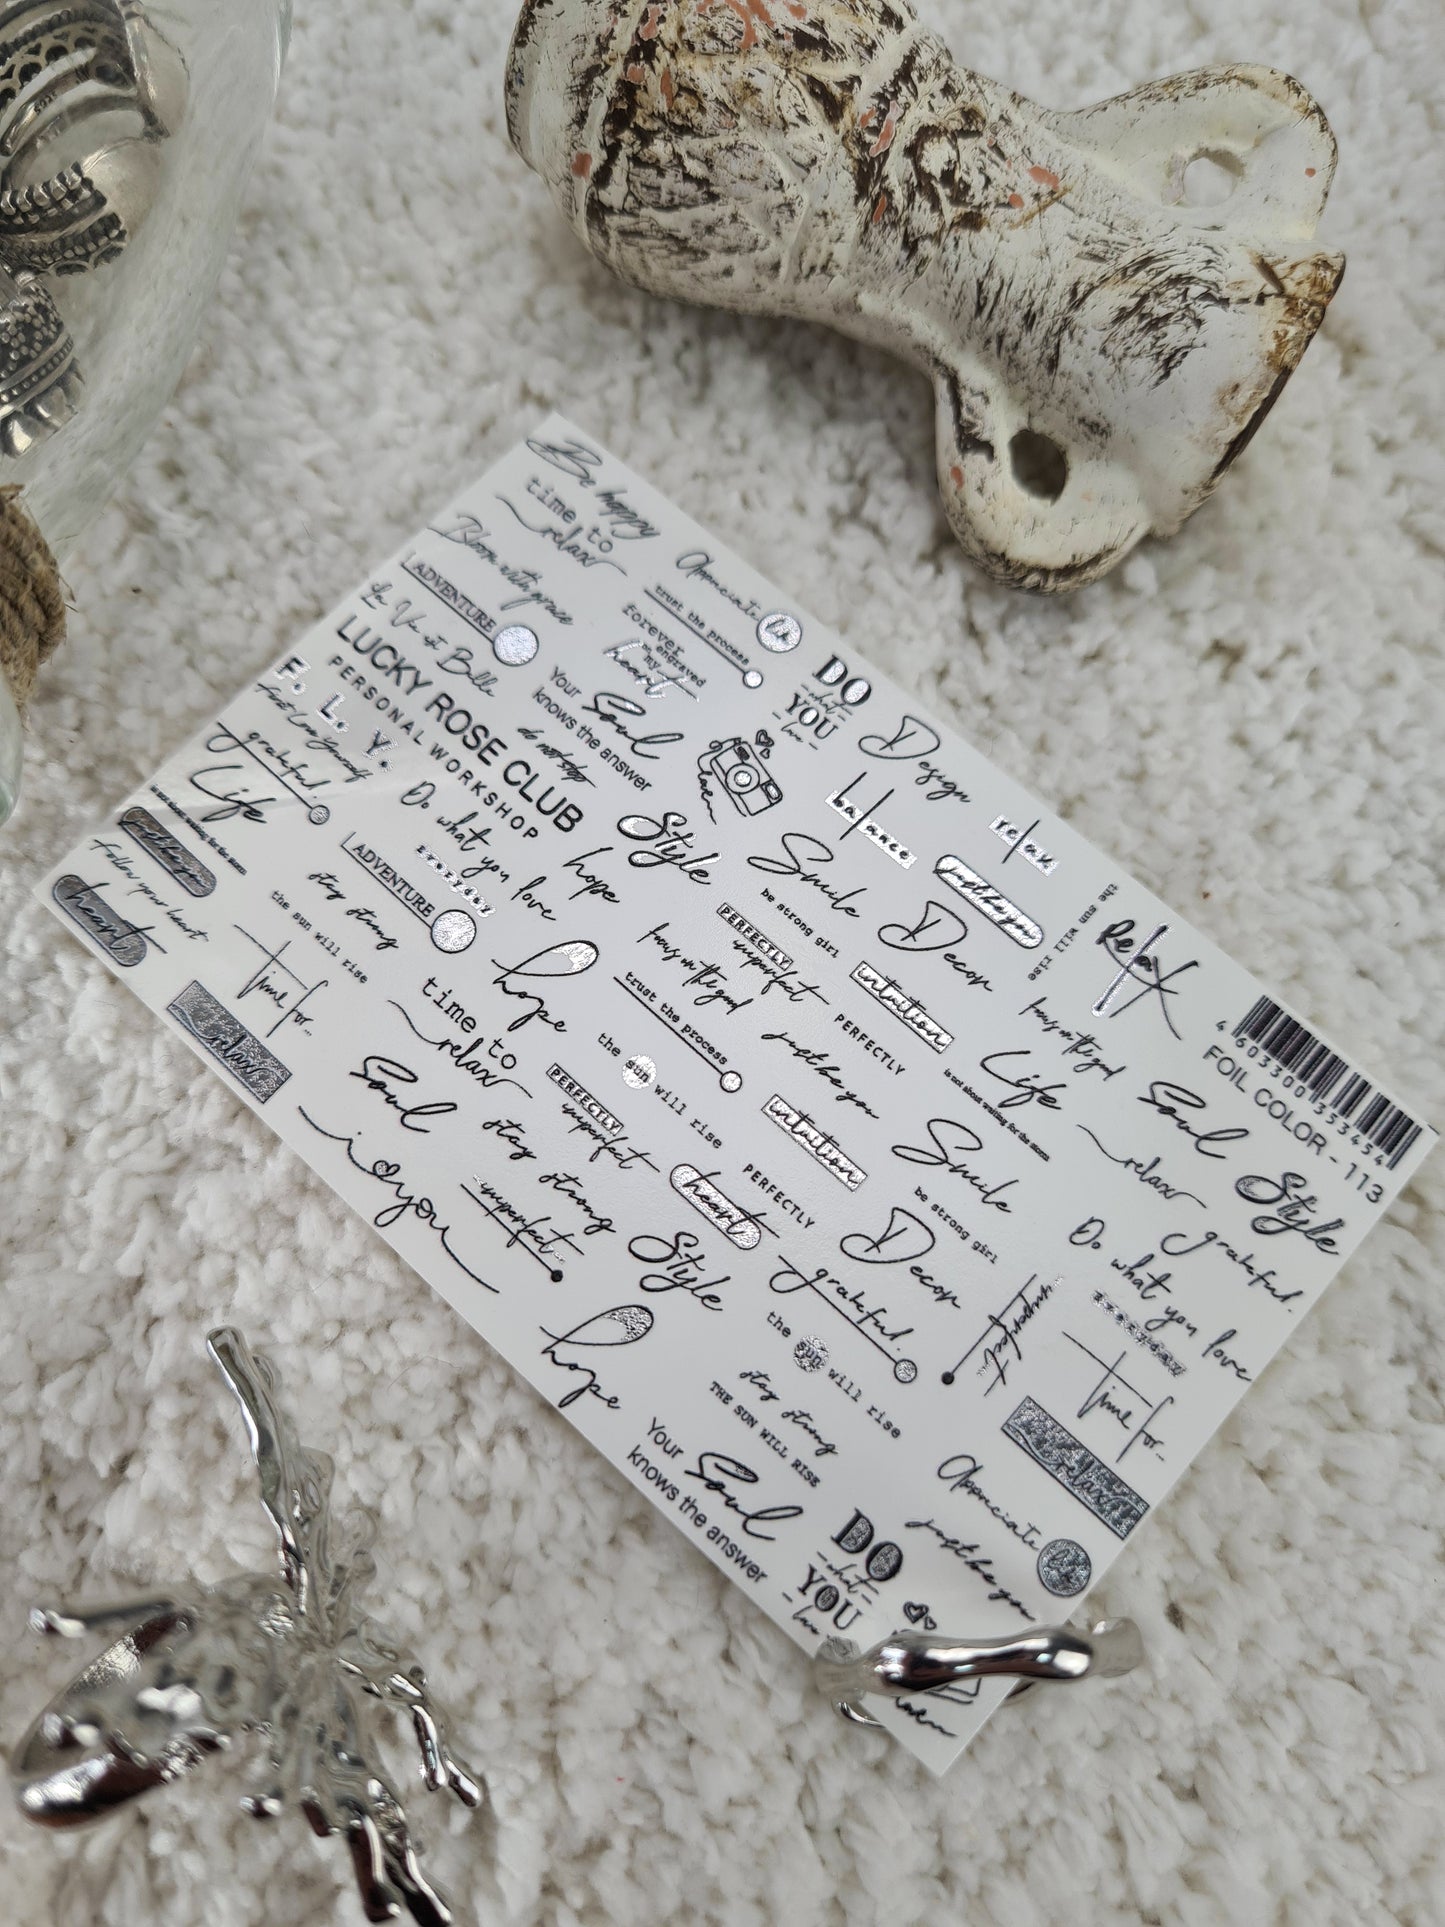 Be happy
time to
relax
Bloom with grace
ADVENTURE
La Vie est Belle
LUCKY ROSE CLUB
PERSONAL WORKSHOP
F. L. Y.
First Love Yourself
grateful.
Life
is not about waiting for the storm
just be you
follow your heart
heart
Appreciate
life
trust the process
forever
in my engraved
heart
Your
Soul
knows the answer
do not stop
Do what you love
everyday
hope
ADVENTURE
stay strong
the sun will rise
Time for...
relax
DO
what
YOU
love
Design
balance
relax
Style
Smile
be strong girl
just be you
Decor
the sun will rise
Relax
PERFECTLY
imperfect
intuition
focus on the good
trust the process
hope
time to
relax
Soul
i you
just be you
PERFECTLY
Life
is not about waiting for the storm
focus on the good
4603300353454
FOIL COLOR - 113
Soul
Style
relax
the sun will rise
PERFECTLY
imperfect
stay strong
imperfect
heart
intuition
PERFECTLY
Smile
be strong girl
Decor
grateful.
Do what you love
everyday
grateful.
Style
hope
the sun will rise
imperfect
Time for...
relax
stay strong
THE SUN WILL RISE
Your
Soul
knows the answer
DO
what
YOU
love
Appreciate
life
just be you